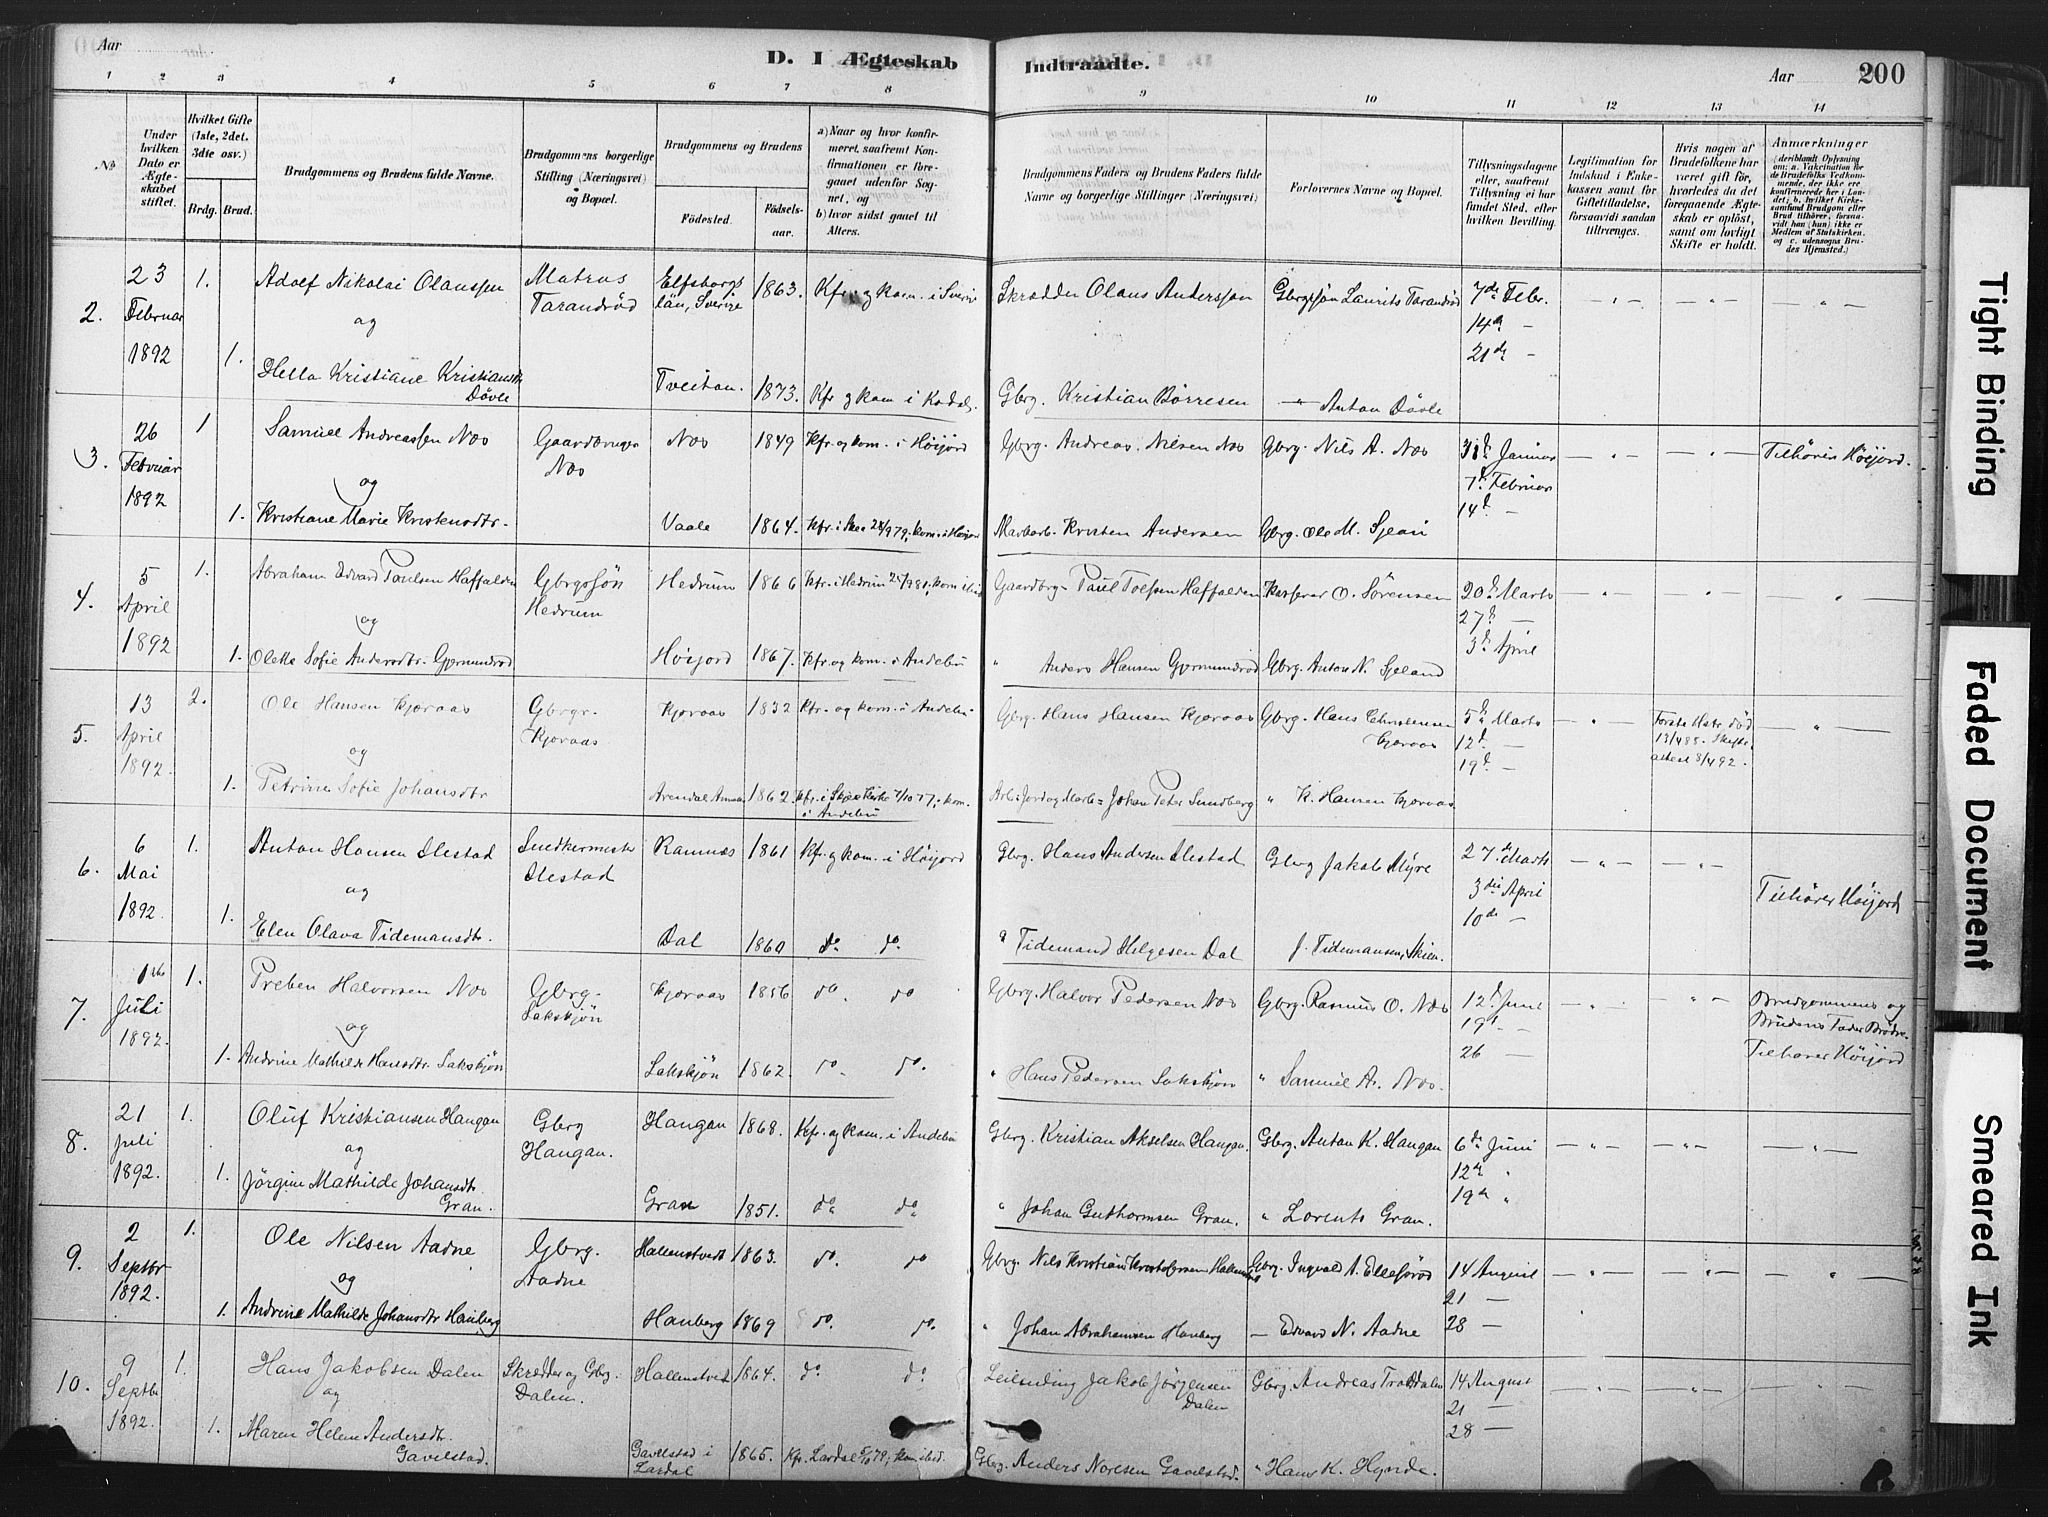 Aar
D. I Ægteskab Indtraadte.
Aar
200
1 2 3 4 5 6 7 8 9 10 11 12 13 14
№
Under hvilken Dato er Ægteskabet stiftet.
Hvilket Gifte (1ste, 2det, 3die osv.)
Brdg. Brud.
Brudgommens og Brudens fulde Navne.
Brudgommens borgerlige Stilling (Næringsvei) og Bopæl.
Brudgommens og Brudens
Fødested.
Fødselsaar.
a) Naar og hvor konfirmeret, saafremt Konfirmationen er foregaaet udenfor Sognet, og
b) hvor sidst gaaet til Alters.
Brudgommens Faders og Brudens Faders fulde Navne og borgerlige Stillinger (Næringsvei)
Forlovernes Navne og Bopæl.
Tillysningsdagene eller, saafremt Tillysning ei har fundet Sted, efter hvilken Bevilling.
Legitimation for Indskud i Enkekassen samt for Giftetilladelse, forsaavidt saadan tiltrænges.
Hvis nogen af Brudefolkene har været gift før, hvorledes da det foregaaende Ægteskab er opløst, samt om lovligt Skifte er holdt.
Anmærkninger
(deriblandt Oplysning om: a. Vakcination for de Brudefolks Vedkommende, der ikke ere konfirmerede her i Landet; b. hvilket Kirkesamfund Brudgom eller Brud tilhører, forsaavidt han (hun) ikke er Medlem af Statskirken, og c. udensogns Brudes Hjemsted.)
2. 23 Februar 1892 1. Adolf Nikolai Olaussen Matros Tarandrød Elfsborgs län, Sverige 1863. Kfr. og kom. i Sverige Skrædder Olaus Andersson Gbrgssøn Laurits Tarandrød 7de Febr. 14de — 21de —
og
1. Hella Kristiane Kristiansdtr Døvle Tveitan. 1873. Kfr. og kom i Kodal. Gbrg. Kristian Börresen — Anton Døvle
3. 26 Februar 1892 1 Samuel Andreassen Nøs Gaardbruger Nøs Nøs 1849 Kfr. og kom. i Høijord Gbrg. Andreas Nilsen Nøs Gbrg. Nils A. Nøs 31te Januar 7de Februar 14de — Tilhører Høijord.
og
1. Kristiane Marie Kristensdtr. Vaale 1864. Kfr. i Skee 28/9 79, kom. i Høijord Kristen Andersen Gbrg. Ole M. Sjeau
4. 5 April 1892 1. Abraham Edvard Paulsen Haffalden Gbrgssøn Hedrum Hedrum 1866 Kfr. i Hedrum 25/9 81, kom ibid Gaardbrg. Paul Tolfsen Haffalden Kasserer O. Sörensen 20de Marts 27de — 3de April
og
1. Oletta Sofie Andersdtr. Gjermundrød Høijord 1867. Kfr. og kom. i Andebu " Anders Hansen Gjermundrød Gbrg. Anton N. Sjeland
5. 13 April 1892. 2. Ole Hansen Kjæraas Gbrgr. Kjæraas Kjæraas 1832 Kfr. og kom. i Andebu Gbrg. Hans Hansen Kjæraas Gbrg. Hans Christensen Kjæraas 5te Marts 12te — 19de — Første Hstr. død 13/4 85. Skifteattest 8/4 92.
og
1. Petrine Sofie Johansdtr Arendal 1862. Kfr. i Skjee Kirke 7/10 77, kom. i Andebu Johan Peter Sundberg " K. Hansen Kjæraas
6. 6 Mai 1892. 1. Anton Hansen Ilestad Snedkermester Ilestad Ramnæs 1861 Kfr. og kom. i Høijord Gbrg. Hans Andersen Ilestad Gbrg Jakob Myre 27de Marts 3die April 10de — Tilhører Høijord
og
1. Elen Olava Tidemansdtr. Dal 1860 do. do. " Tidemand Helgesen Dal J. Tidemansen, Skien.
7. 1ste Juli 1892. 1. Preben Halvorsen Nøs Gbrg. Sakskjøn Kjæraas 1856 do. do Gbrg. Halvor Pedersen Nøs Gbrg. Rasmus O. Nøs 12te Juni 19de — 26 — Brudgommens og Brudens Fader Brødre. Tilhører Høijord
og
1. Andrine Mathilde Hansdtr. Sakskjøn Sakskjøn 1862. do. do. " Hans Pedersen Sakskjøn " Samuel A. Nøs.
8. 21 Juli 1892. 1. Oluf Kristiansen Haugan Gbrg Haugan. Haugan 1868. Kfr. og kom. i Andebu Gbrg. Kristian Akselsen Haugan. Gbrg. Anton K. Haugan 6de Juni 12te " 19de "
og
1. Jörgine Mathilde Johansdtr. Gran. Gran 1851. do do " Johan Guthormsen Gran. " Lorents Gran.
9. 2 Septbr 1892. 1. Ole Nilsen Aadne Gbrg. Aadne Hallenstvedt 1863. do. do Gbrg. Nils Kristian Kristofersen Gbrg. Ingvald A. Ellefsrød 14 August 21 — 28 —
og
1. Andrine Mathilde Johansdtr Hauberg Hauberg 1869 do. do. " Johan Abrahamsen Hauberg — Edvard N. Aadne
10. 9 Septbr 1892. 1. Hans Jakobsen Dalen Skrædder og Gbrg. Dalen. Hallenstvedt 1864. do do. Leilending Jakob Jørgensen Dalen Gbrg. Andreas Trolldalen 14 August 21 — 28 —
og
1. Maren Helene Andersdtr. Gavelstad. Gavelstad i Lardal 1865. Kfr. Lardal 5/10 79, kom ibid. Gbrg. Anders Gavelstad. " Hans K. Hynde.
Tight Binding
Faded Document
Smeared Ink